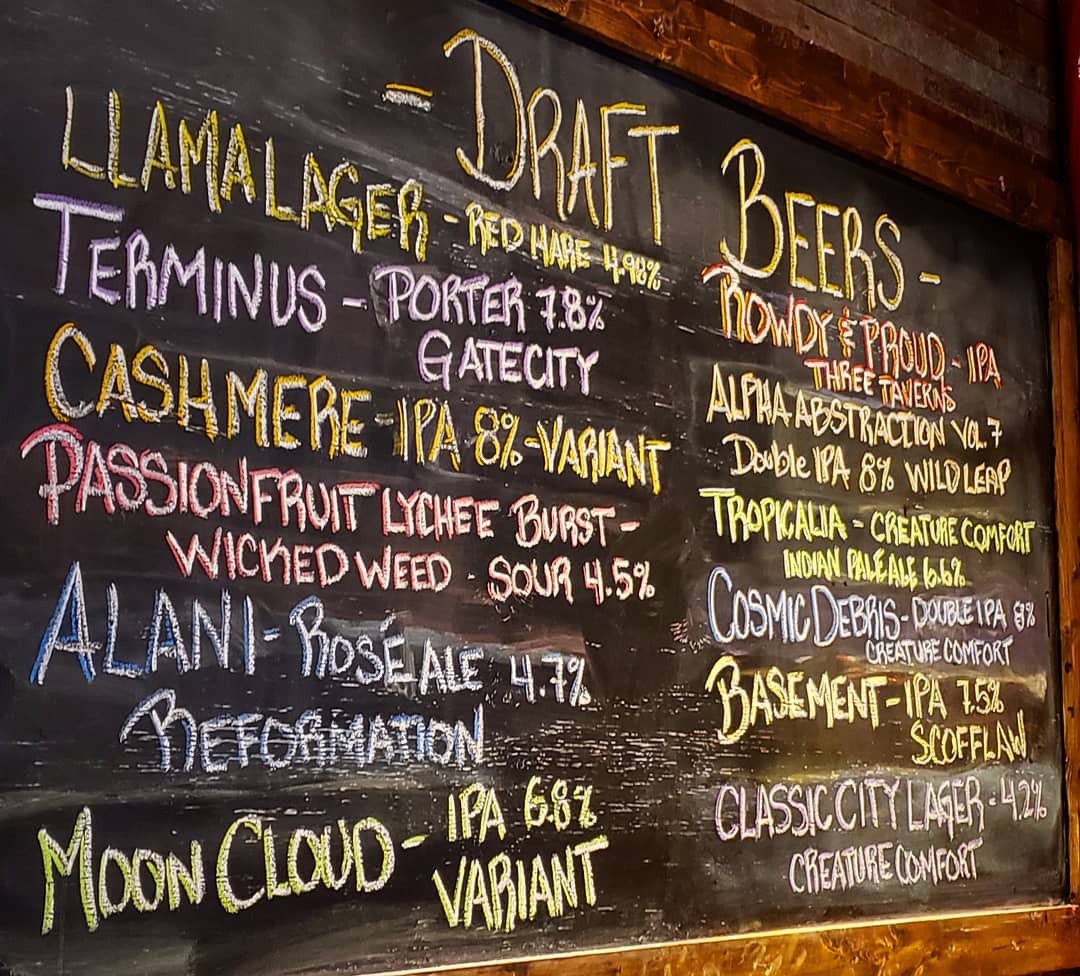 - DRAFT BEERS -
LLAMA LAGER - RED HARE 4.98%
TERMINUS - PORTER 7.8%
GATECITY
CASHMERE - IPA 8% - VARIANT
PASSIONFRUIT LYCHEE BURST -
WICKED WEED - SOUR 4.5%
ALANI - ROSÉ ALE 4.7%
REFORMATION
MOON CLOUD - IPA 6.8%
VARIANT
ROWDY & PROUD - IPA
THREE TAVERNS
ALPHA ABSTRACTION VOL. 7
Double IPA 8% WILD LEAP
TROPICALIA - CREATURE COMFORT
INDIAN PALE ALE 6.6%
COSMIC DEBRIS - DOUBLE IPA 8%
CREATURE COMFORT
BASEMENT - IPA 7.5%
SCOFFLAW
CLASSIC CITY LAGER - 4.2%
CREATURE COMFORT